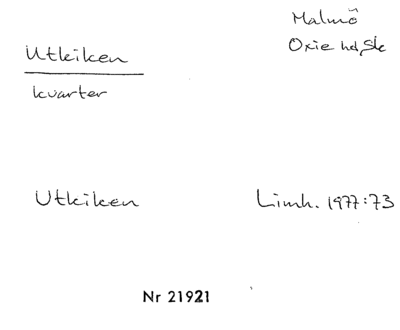 Malmö
Oxie hd, Sk
Utkiken
kvarter
Utkiken Limh. 1977:73
Nr 21921